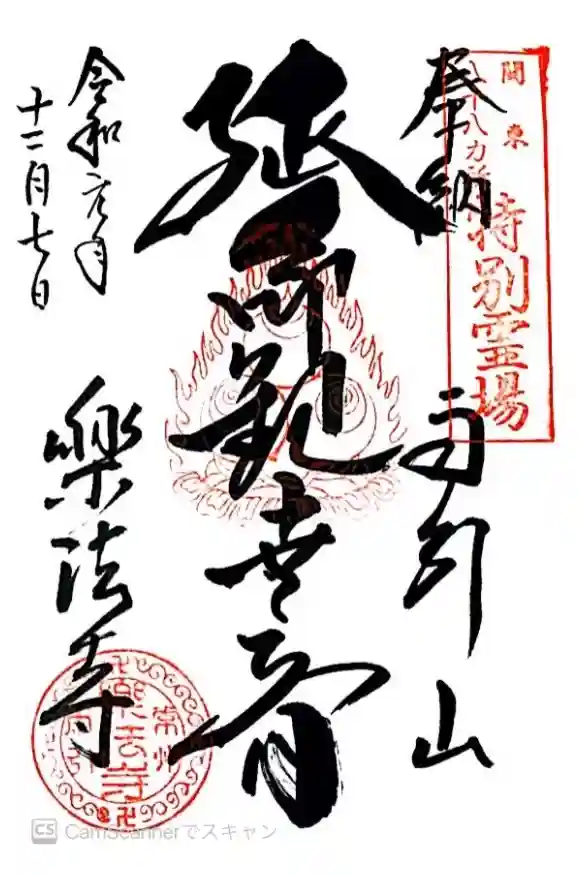 奉納
雨引山
関東
八十八カ所
特別霊場
延命観世音
樂法寺
令和元年
十二月七日
常州
樂法寺
CS CamScannerでスキャン